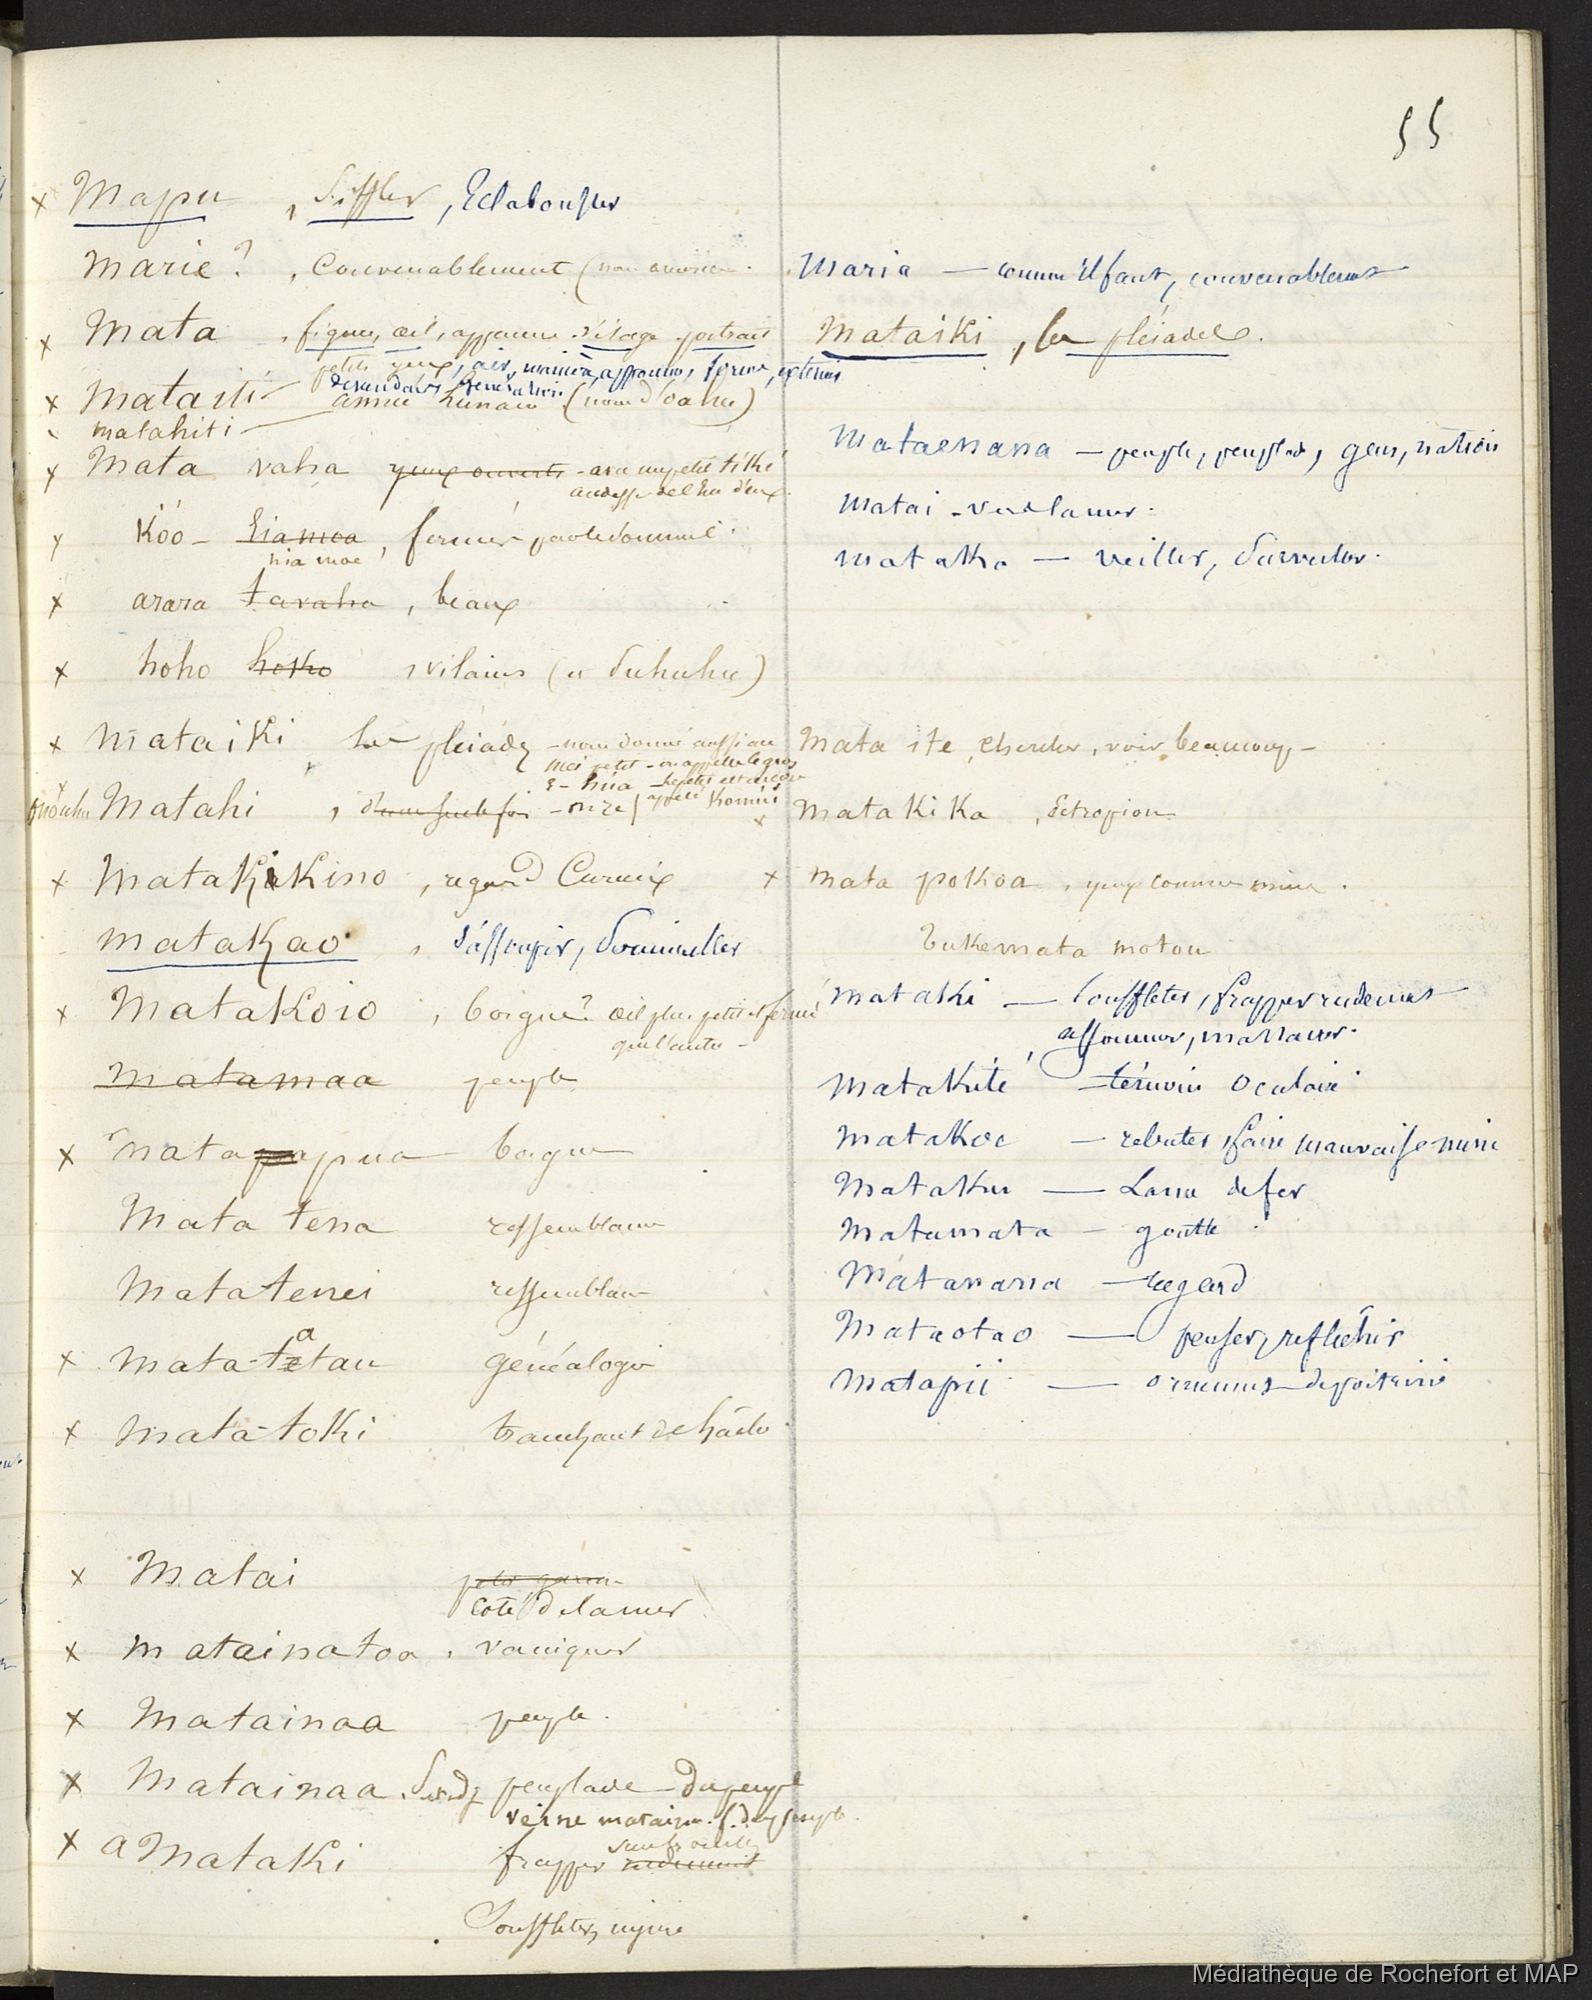 55
x Mapu , Siffler, Eclabousser
Marie? , Convenablement (non
x Mata . figure, œil, apparence . visage . portrait
petits yeux, air, manière, apparence, forme, extérieur
descendants, génération
x Mataiti année lunaire (
matahiti
x Mata vaha yeux ouverts - avec un petit tiki
au dessus de l'un d'eux
x Kôo - Eiamoa , fermés
hia moe
x arara taraha , beaux
x hoho hoko , vilains (
x mataiki les pléiades - nom donné aussi au
mei petit - on appelle le gros
E - hua -
x Matahi , d'une seule fois - onze
x Matakikino , regard Curieux
matakao , s'assoupir, Sommeiller
x Matakoio , borgne? œil plus petit et fermé
que l'autre -
matamaa peuple
x matapapua borgne
Mata tena ressemblance
Matatenei ressemblance
x mata-tatau généalogie
x mata-toki tranchant de hâche
x Matai
coté de la mer
x matainatoa , vainqueur
x Matainaa peuple.
x Matainaa peuplade - du peuple
x a Mataki frapper rudement
Souffleter, injure
Maria - comme il faut, convenablement
Mataiki , les pléiades.
Mataenana - peuple, peuplade, gens, nation
Matai - vers la mer.
mataka - veiller, Surveiller.
Mata ite, chercher, voir beaucoup -
x Matakika , Ectropion
x mata pokoa , yeux comme
Tukemata motou
mataki - Souffleter, frapper rudement
assommer, massacrer.
Matakite - témoin oculaire
matakoe - rebuter, faire mauvaise mine
Matakui - Lame de fer
Matamata - goutte
Matanana - regard
Mataotao - penser, réfléchir
Matapii - ornement de poitrine
Médiathèque de Rochefort et MAP